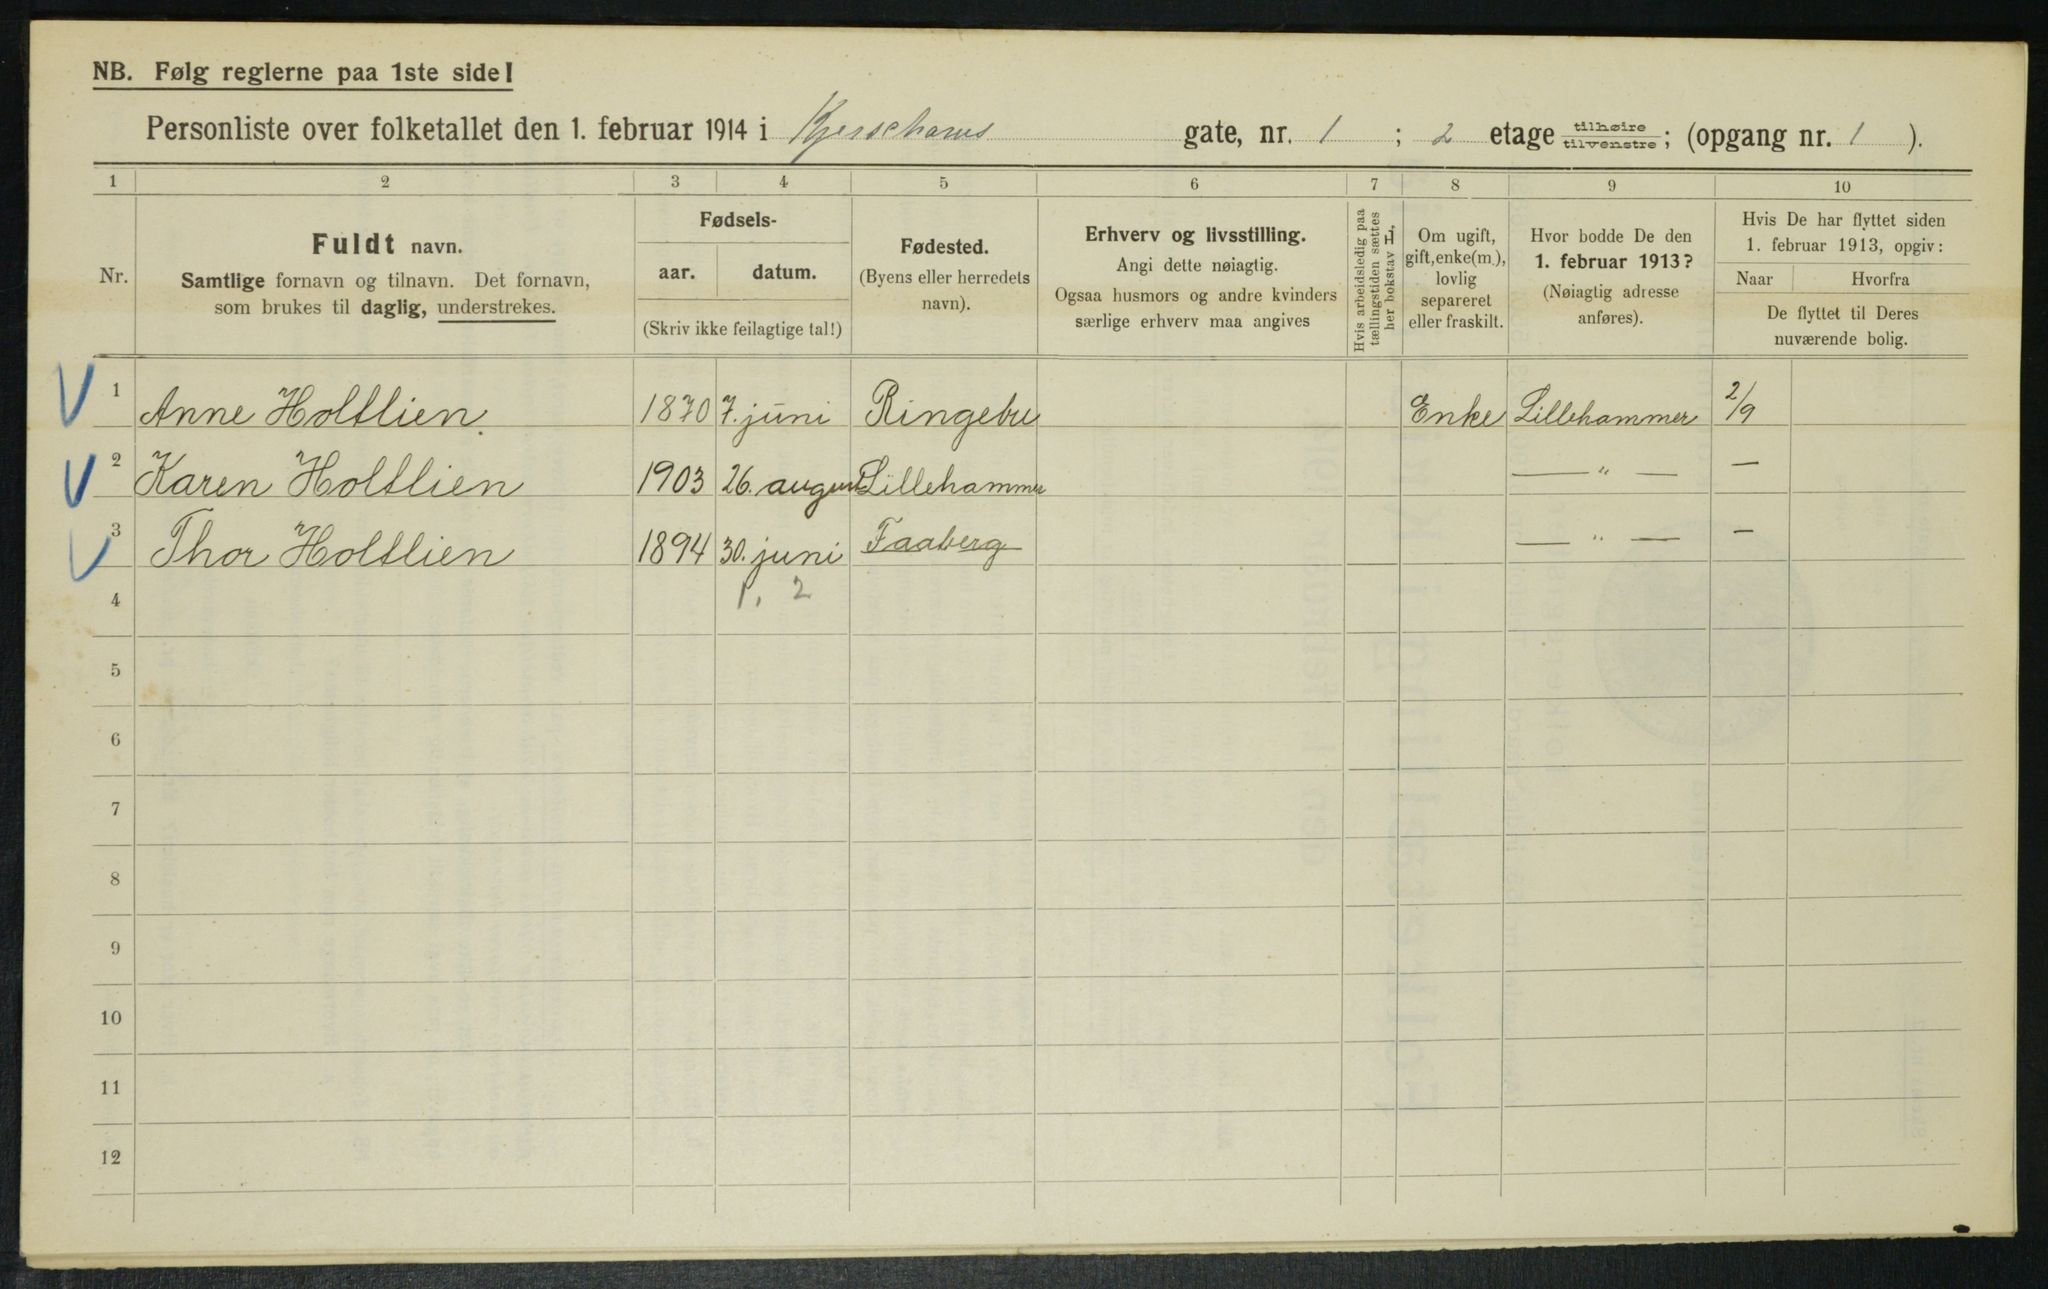 NB. Følg reglerne paa 1ste side!
Personliste over folketallet den 1. februar 1914 i Kjerschows gate, nr. 1 ; 2 etage tilhøire tilvenstre; (opgang nr. 1 ).
1 2 3 4 5 6 7 8 9 10
Nr.
Fuldt navn.
Samtlige fornavn og tilnavn. Det fornavn,
som brukes til daglig, understrekes.
Fødsels-
aar. datum.
(Skriv ikke feilagtige tal!)
Fødested.
(Byens eller herredets
navn).
Erhverv og livsstilling.
Angi dette nøiagtig.
Ogsaa husmors og andre kvinders
særlige erhverv maa angives
Hvis arbeidsledig paa
tællingstiden sættes
her bokstav L.
Om ugift,
gift, enke(m.),
lovlig
separeret
eller fraskilt.
Hvor bodde De den
1. februar 1913?
(Nøiagtig adresse
anføres).
Hvis De har flyttet siden
1. februar 1913, opgiv:
Naar Hvorfra
De flyttet til Deres
nuværende bolig.
1 Anne Holtlien. 1870 7. juni Ringebu Enke Lillehammer 2/9
2 Karen Holtlien 1903 26. august Lillehammer — " — —
3 Thor Holtlien 1894 30. juni Faaberg — " — —
4 1. 2
5
6
7
8
9
10
11
12